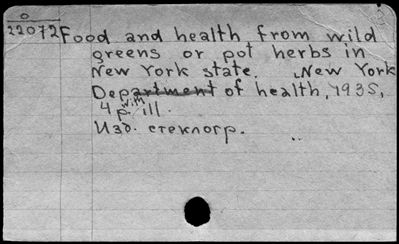 0
22072 Food and health from wild
greens or pot herbs in
New York state. New York
Department of health, 1935,
4 p. with ill.
Изд. стеклогр.